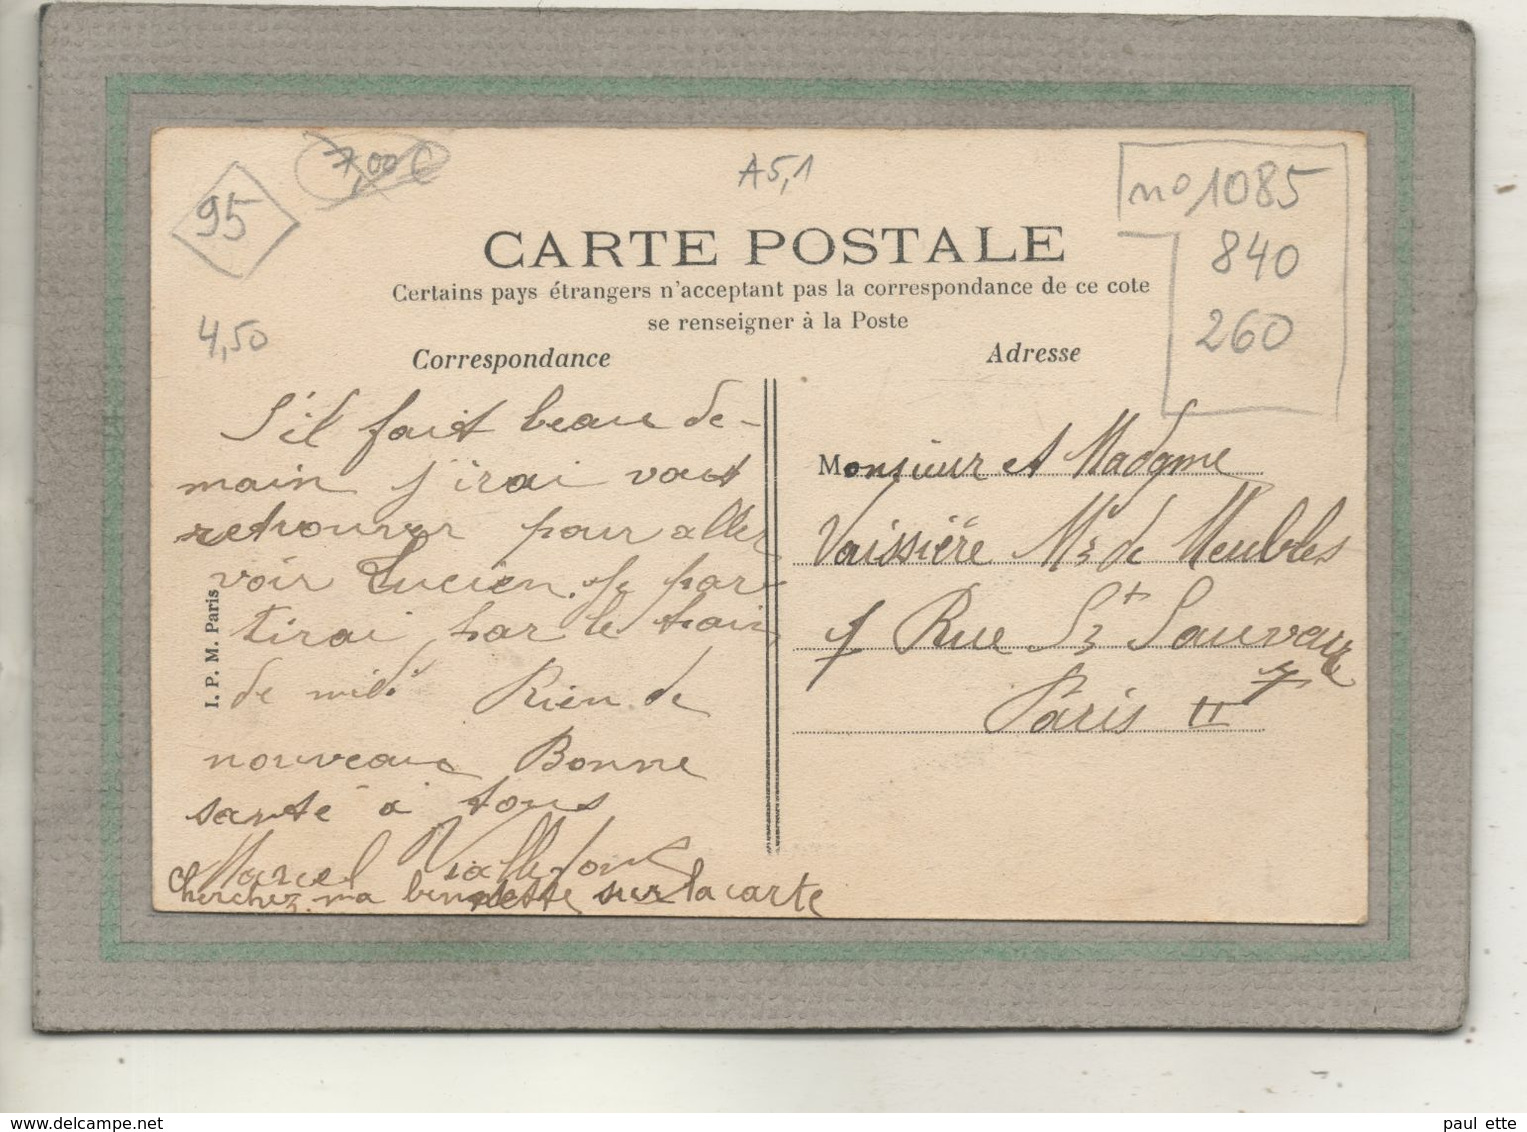 95
7,00 €
A5,1
n° 1085
840
260
4,50
CARTE POSTALE
Certains pays étrangers n'acceptant pas la correspondance de ce cote
se renseigner à la Poste
Correspondance
S'il fait beau de-
main j'irai vous
retrouver pour aller
voir Lucien. Je par-
tirai par le train
de midi Rien de
nouveau Bonne
santé à tous
Marcel
Cherchez ma sur la carte
I. P. M. Paris
Adresse
Monsieur et Madame
Vaissière Md de Meubles
7 Rue St Sauveur
Paris II
www.delcampe.net
paul ette